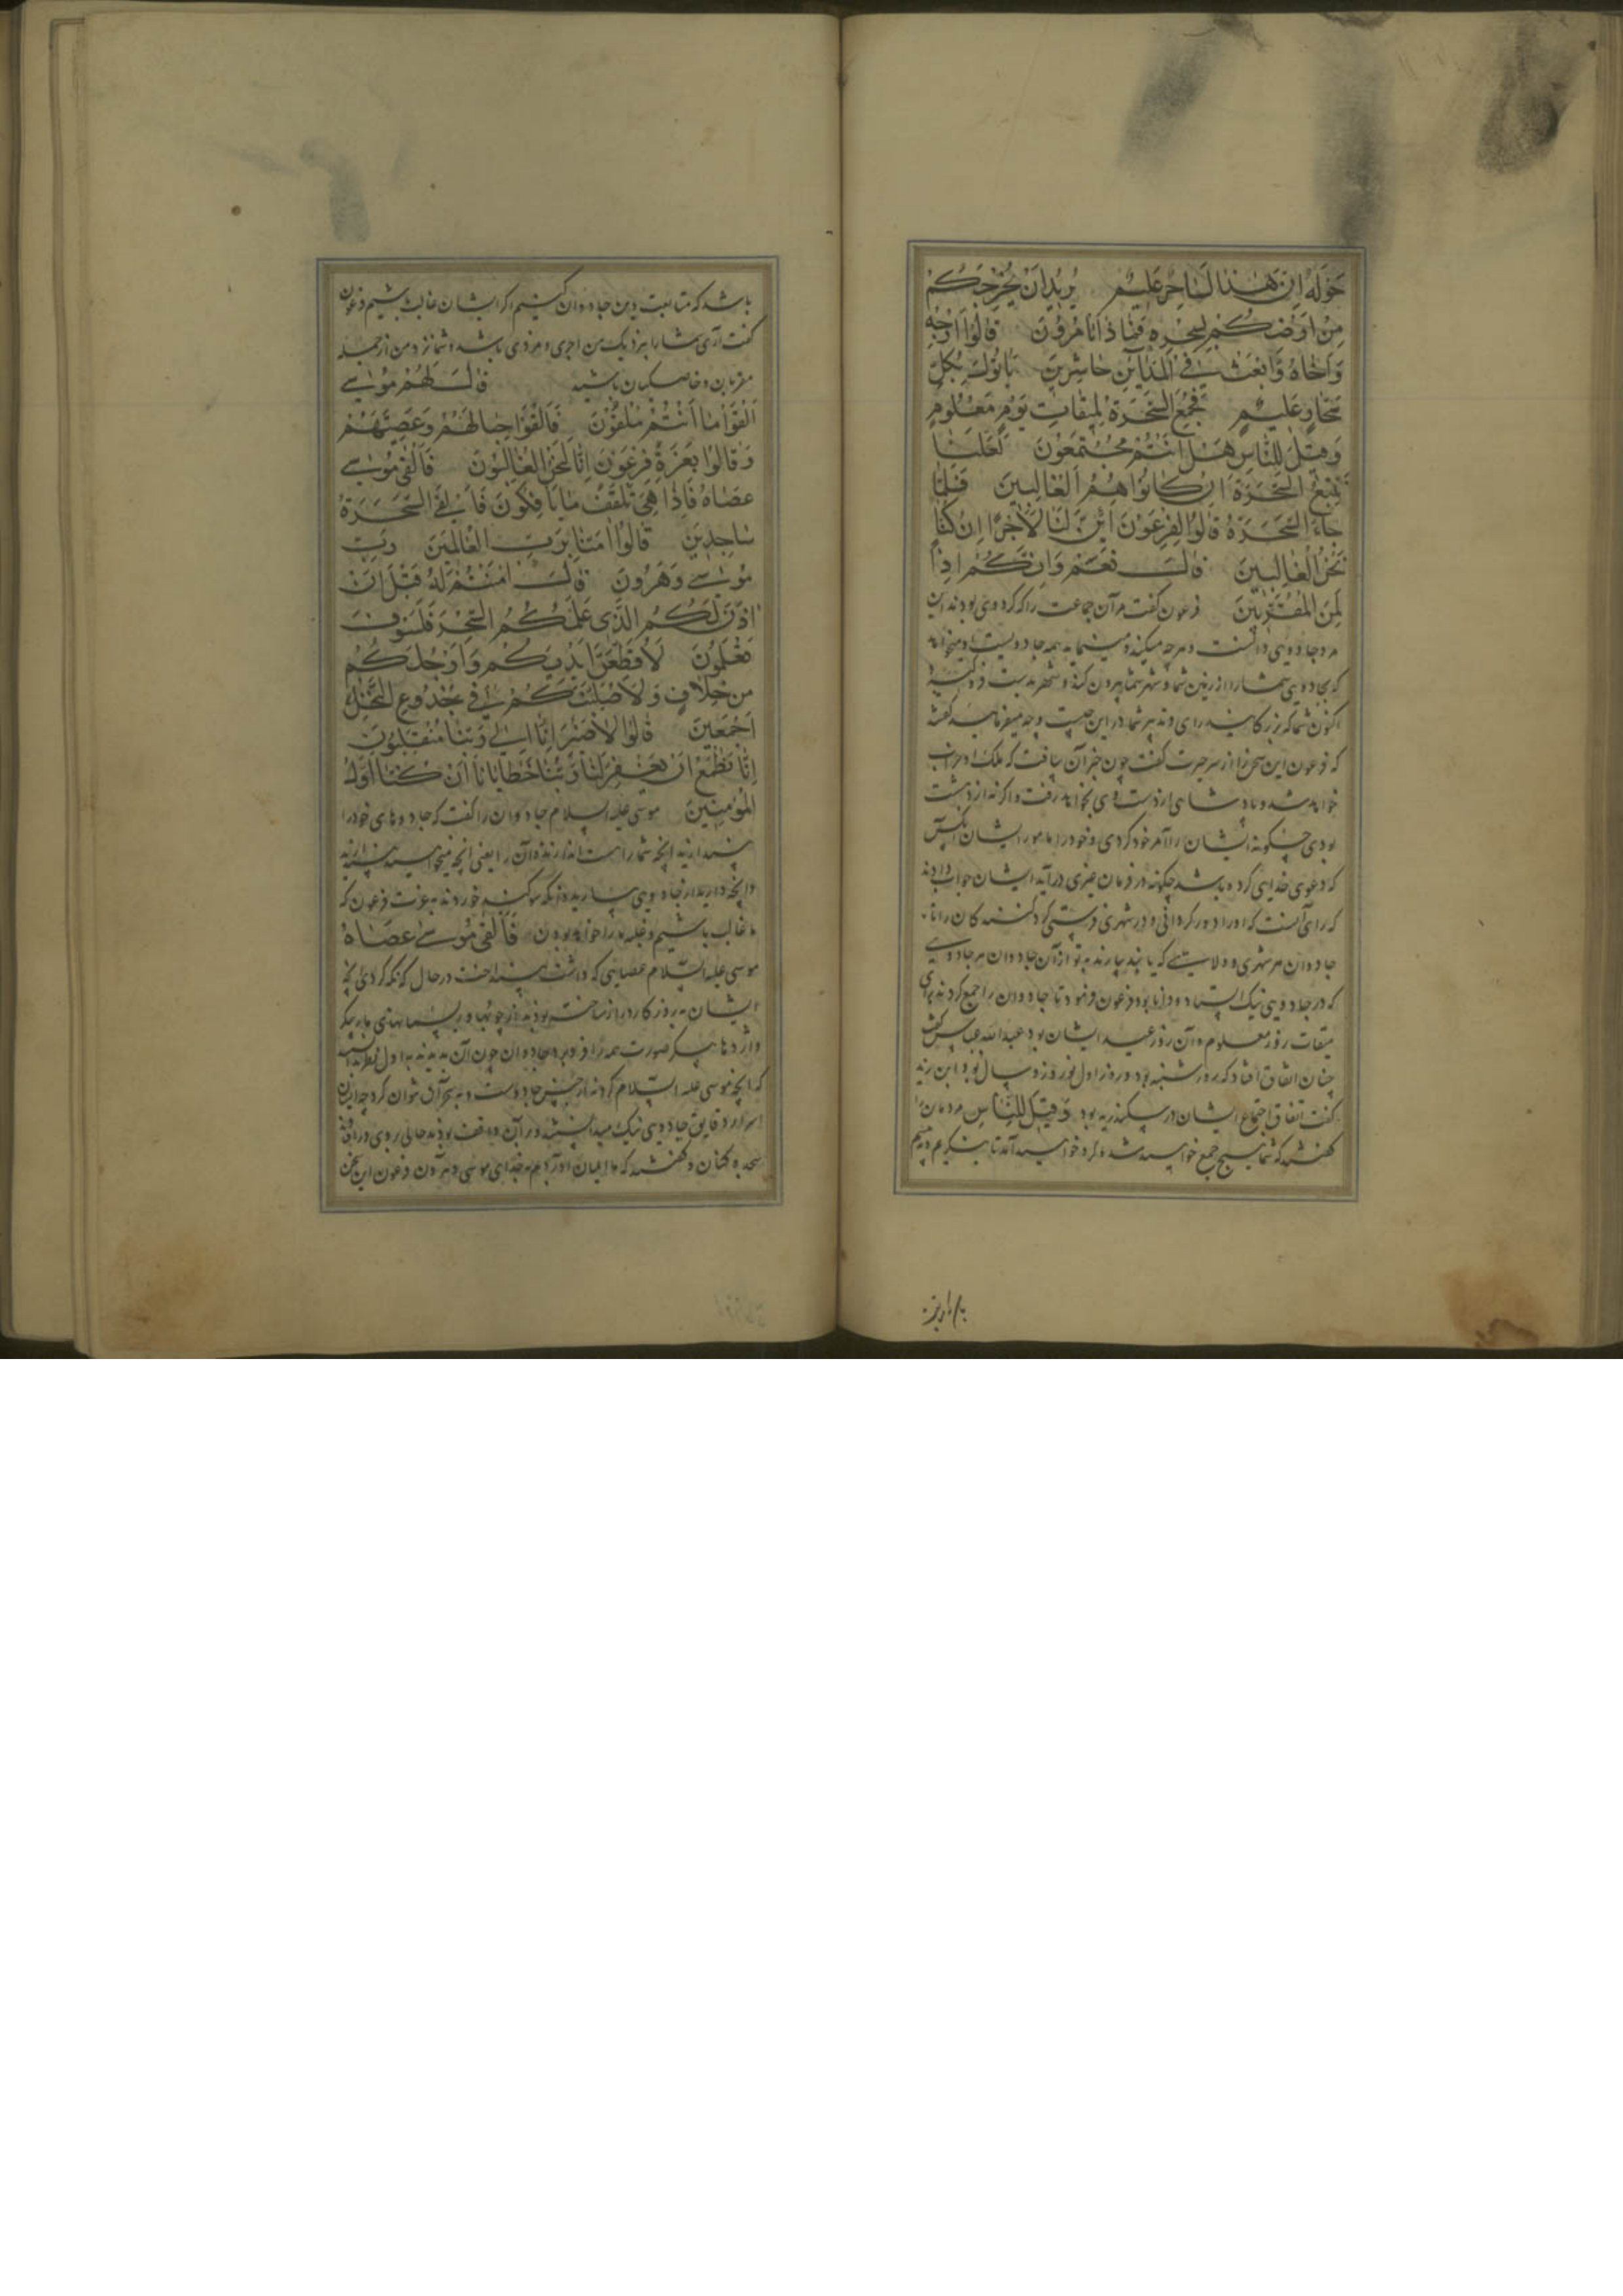 حَوْلَهُ اِنَّ هٰذَا لَسَاحِرٌ عَلِیمٌ یُرِیدُ اَنْ یُخْرِجَكُمْ
مِنْ اَرْضِكُمْ بِسِحْرِهِ فَمَاذَا تَأمُرُونَ قَالُوا اَرْجِهْ
وَاَخَاهُ وَابْعَثْ فِی الْمَدَآئِنِ حَاشِرِینَ یَأتُوكَ بِكُلِّ
سَحَّارٍ عَلِیمٍ فَجُمِعَ السَّحَرَةُ لِمِیقَاتِ یَوْمٍ مَعْلُومٍ
وَقِیلَ لِلنَّاسِ هَلْ اَنْتُمْ مُجْتَمِعُونَ لَعَلَّنَا
نَتَّبِعُ السَّحَرَةَ اِنْ كَانُوا هُمُ الْغَالِبِینَ فَلَمَّا
جَاءَ السَّحَرَةُ قَالُوا لِفِرْعَوْنَ اَئِنَّ لَنَا لَاَجْرًا اِنْ كُنَّا
نَحْنُ الْغَالِبِینَ قَالَ نَعَمْ وَاِنَّكُمْ اِذًا
لَمِنَ الْمُقَرَّبِینَ فرعون گفت مر آن جماعت را که گرد وی بودند این
مرد جادویی داناست و هرچه میکند و مینماید همه جادویست و میخواهد
که بجادویی شما را از زمین شما و شهر شما بیرون کند و
اکنون شما که بزرگانید رای و تدبیر شما در این چیست و چه میفرمایید گفته‌اند
که فرعون این سخن را از سر حیرت گفت چون خبر آن یافت که ملک او خراب
خواهد شد و پادشاهی از دست وی بخواهد رفت و اگر نه از دهشت
بودی چگونه ایشان را آمر خود کردی و خود را مأمور ایشان و آنکس
که دعوی خدایی کرده باشد چگونه در فرمان غیری درآید ایشان جواب دادند
که رای آنست که او را و برادر
جادوان هر شهری و ولایتی که یابند بیارند به تو از آن جادوان هر جادویی
که در جادویی نیک استاد و دانا بود فرعون فرمود تا جادوان را جمع کردند برای
میقات روز معلوم و آن روز عید ایشان بود عبدالله عباس گفت
چنان اتفاق افتاد که روز شنبه بود و روز اول نوروز و سال نو و ابن زید
گفت اتفاق اجتماع ایشان در اسکندریه بود وَقِیلَ لِلنَّاسِ مردمان را
گفتند که شما هیچ جمع خواهید شد و گرد خواهید آمد تا بنگریم و ببینیم
باشد که متابعت دین جادوان کنیم اگر ایشان غالب باشیم فرعون
گفت آری شما را بنزدیک من اجری و مزدی باشد و شما نزد من از جمله
مقربان و خاصگیان باشید قَالَ لَهُمْ مُوسٰی
اَلْقُوا مَا اَنْتُمْ مُلْقُونَ فَاَلْقَوْا حِبَالَهُمْ وَعِصِیَّهُمْ
وَقَالُوا بِعِزَّةِ فِرْعَوْنَ اِنَّا لَنَحْنُ الْغَالِبُونَ فَاَلْقٰی مُوسٰی
عَصَاهُ فَاِذَا هِیَ تَلْقَفُ مَا یَأفِكُونَ فَاُلْقِیَ السَّحَرَةُ
سَاجِدِینَ قَالُوا اٰمَنَّا بِرَبِّ الْعَالَمِینَ رَبِّ
مُوسٰی وَهٰرُونَ قَالَ اٰمَنْتُمْ لَهُ قَبْلَ اَنْ
اٰذَنَ لَكُمْ الَّذِی عَلَّمَكُمُ السِّحْرَ فَلَسَوْفَ
تَعْلَمُونَ لَاُقَطِّعَنَّ اَیْدِیَكُمْ وَاَرْجُلَكُمْ
مِنْ خِلَافٍ وَلَاُصَلِّبَنَّكُمْ فِی جُذُوعِ النَّخْلِ
اَجْمَعِینَ قَالُوا لَا ضَیْرَ اِنَّا اِلٰی رَبِّنَا مُنْقَلِبُونَ
اِنَّا نَطْمَعُ اَنْ یَغْفِرَ لَنَا رَبُّنَا خَطَایَانَا اَنْ كُنَّا اَوَّلَ
الْمُؤْمِنِینَ موسی علیه السلام جادوان را گفت که جادوهای خود را
بیندازید آنچه شما راست اندازنده آن را یعنی آنچه میخواهید بیندازید
و آنچه دارید از جادویی بیارید سوگند خوردند به عزت فرعون که
ما غالب باشیم و غلبه ما را خواهد بودن فَاَلْقٰی مُوسٰی عَصَاهُ
موسی علیه السلام عصایی که داشت بینداخت در حال که نگه کردی آنچه
ایشان به روزگار دراز ساخته بودند از چوبها و ریسمانهای مارپیکر
و اژدها پیکر صورت همه را فرو برد جادوان چون آن بدیدند به اول نظر
که آنچه موسی علیه السلام کرد نه از جنس جادوست و به سحر آن نتوان کرد چه ایشان
اسرار دقایق جادویی نیک میدانستند و بر آن واقف بودند حالی روی در افتادند
سجده کنان و گفتند که ما ایمان آوردیم به خدای موسی و هرون فرعون این سخن